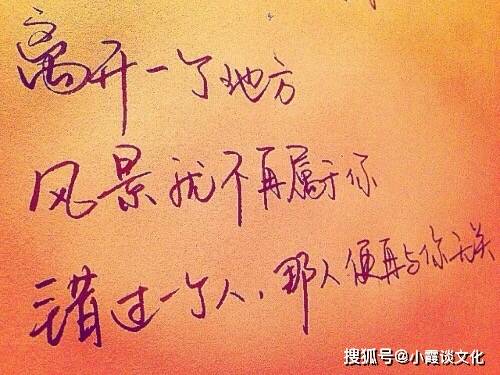 离开一个地方
风景就不再属于你
错过一个人，那人便再与你无关
搜狐号@小霞谈文化